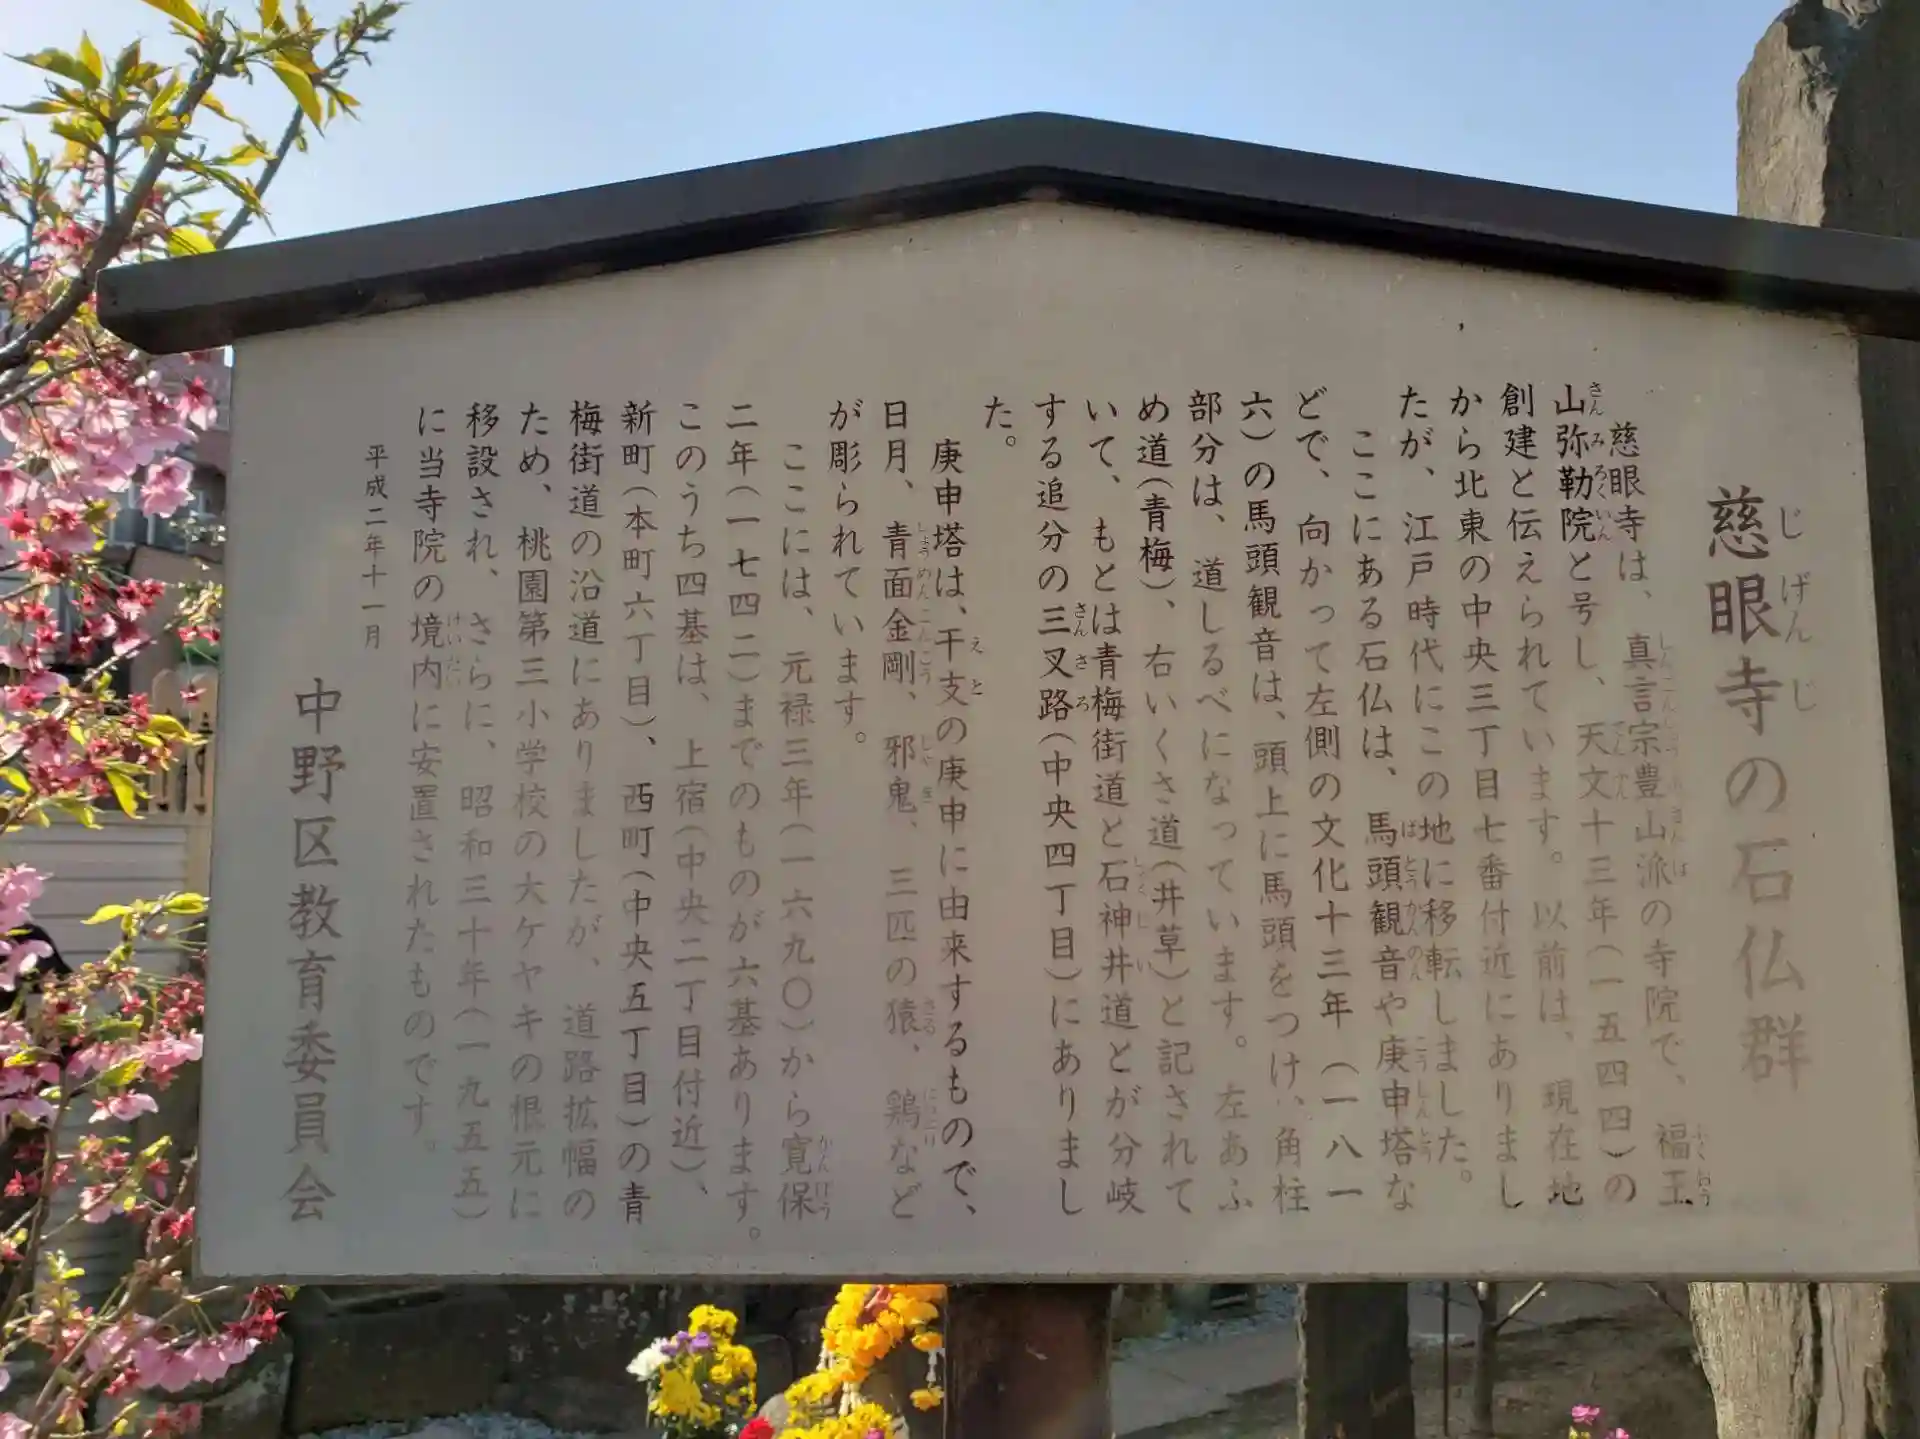 慈眼寺の石仏群
慈眼寺は、真言宗豊山派の寺院で、福王
山弥勒院と号し、天文十三年(一五四四)の
創建と伝えられています。以前は、現在地
から北東の中央三丁目七番付近にありまし
たが、江戸時代にこの地に移転しました。
ここにある石仏は、馬頭観音や庚申塔な
どで、向かって左側の文化十三年(一八一
六)の馬頭観音は、頭上に馬頭をつけ、角柱
部分は、道しるべになっています。左あふ
め道(青梅)、右いくさ道(井草)と記されて
いて、もとは青梅街道と石神井道とが分岐
する追分の三叉路(中央四丁目)にありまし
た。
庚申塔は、干支の庚申に由来するもので、
日月、青面金剛、邪鬼、三匹の猿、鶏など
が彫られています。
ここには、元禄三年(一六九〇)から寛保
二年(一七四二)までのものが六基あります。
このうち四基は、上宿(中央二丁目付近)、
新町(本町六丁目)、西町(中央五丁目)の青
梅街道の沿道にありましたが、道路拡幅の
ため、桃園第三小学校の大ケヤキの根元に
移設され、さらに、昭和三十年(一九五五)
に当寺院の境内に安置されたものです。
平成二年十一月
中野区教育委員会